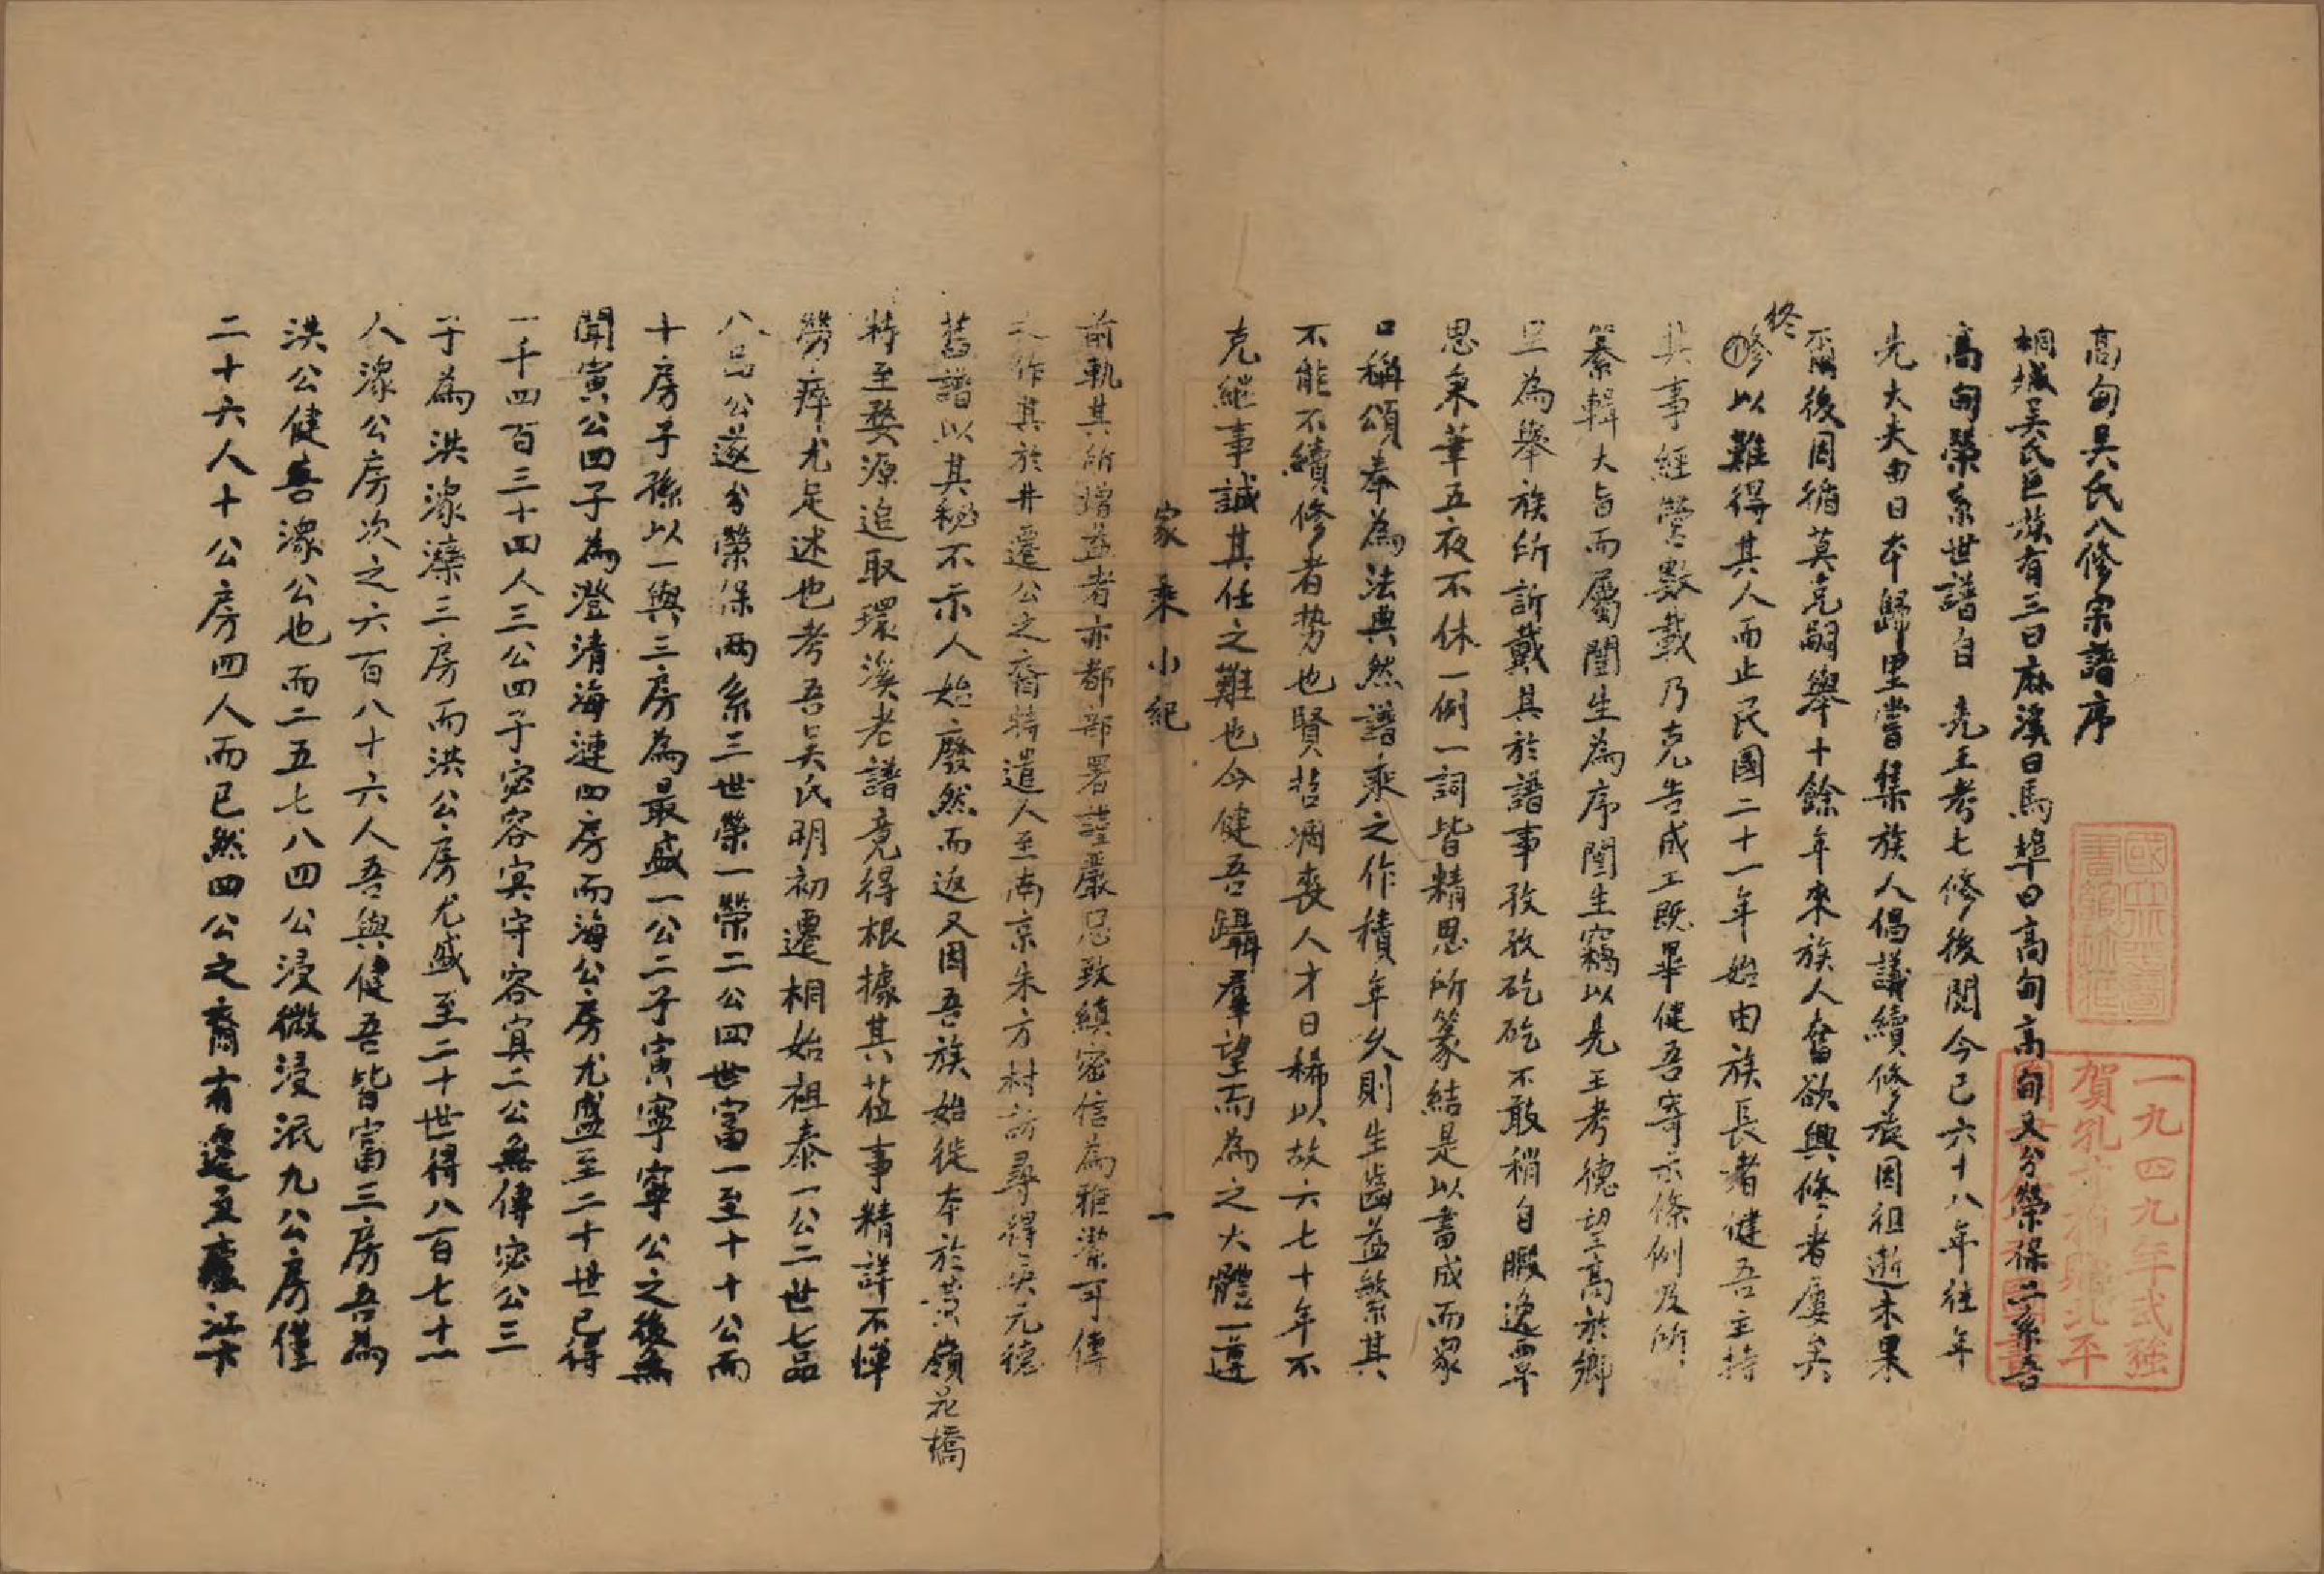 高甸吴氏八修宗譜序
桐城吴氏巨族有三曰麻溪曰馬埠曰高甸高甸又分榮保二系吾
高甸榮系世譜自 先王考七修後閱今已六十八年往年
先大夫由日本歸里嘗集族人倡議續修旋因祖逝未果
爾後因循莫克嗣舉十餘年來族人奮欲興修者屢矣
終
修以難得其人而止民國二十一年始由族長者健吾主持
其事經營數載乃克告成工既畢健吾寄示條例及所
纂輯大旨而屬闓生為序闓生竊以先王考德望高於鄉
里為舉族所訢戴其於譜事孜孜矻矻不敢稍自暇逸覃
思秉筆五夜不休一例一詞皆精思所篆結是以書成而眾
口稱頌奉為法典然譜乘之作積年久則生齒益繁其
不能不續修者势也賢哲凋喪人才日稀以故六七十年不
克繼事誠其任之難也今健吾躡羣望而為之大體一遵
家乘小紀 一
前軌其所增益者亦都部署謹嚴思致縝密信為雅潔可傳
之作其於井遷公之裔特遣人至南京朱方村訪尋得吳元德
舊譜以其秘不示人始廢然而返又因吾族始徙本於黄嶺花橋
特至婺源追取環溪老譜竟得根據其蒞事精詳不憚
勞瘁尤足述也考吾吴氏明初遷桐始祖泰一公二世七品
八品公遂分榮保兩系三世榮一榮二公四世富一至十十公而
十房子孫以一與三房為最盛一公二子寅寧寧公之後無
聞寅公四子為澄清海漣四房而海公房尤盛至二十世已得
一千四百三十四人三公四子宓容寘守容寘二公無傳宓公三
子為洪濠濼三房而洪公房尤盛至二十世得八百七十一
人濠公房次之六百八十六人吾與健吾皆富三房吾為
洪公健吾濠公也而二五七八四公浸微浸泯九公房僅
二十六人十公房四人而已然四公之裔有遷至廬江下
國立北平圖書館珍藏
一九四九年武强
賀孔才捐贈北平
圖書館之圖書